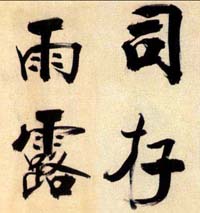 司存
雨露